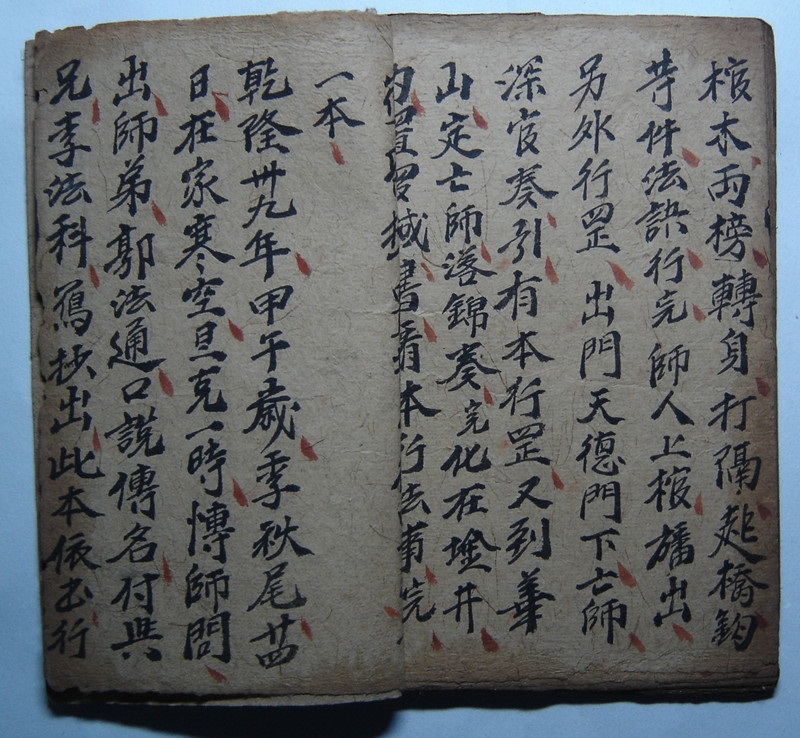 棺木両榜轉身打隔起橋鈞
苛件法訣行完師人上棺旛出
另外行罡出門天德門下亡師
深官奏引有本行罡又到華
山定亡師落錦奏完化在堂井
罡械書看本行法事完
一本
乾隆卅九年甲午歲季秋尾廿四
日在家寒空旦克一時慱師問
出師弟郭法通口說傳名付與
兄李法科爲抄出此本依書行